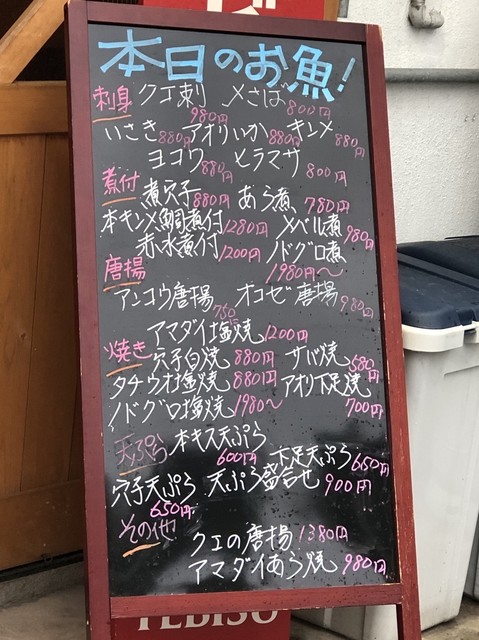 本日のお魚!
刺身 クエ刺 〆さば 800円
980円
いさき 880円 アオリいか 880円 キンメ 880円
ヨコワ 880円 ヒラマサ 800円
煮付 煮穴子 880円 あら煮 780円
本キンメ鯛煮付 1280円 メバル煮 980円
赤水煮付 1200円 ノドグロ煮
1980円〜
唐揚
アンコウ唐揚 750円 オコゼ唐揚 980円
アマダイ塩焼 1200円
焼き 穴子白焼 880円 サバ焼 580円
タチウオ塩焼 880円 アオリ下足焼
ノドグロ塩焼 1980〜 700円
天ぷら 本キス天ぷら
600円 下足天ぷら 650円
穴子天ぷら 天ぷら盛合せ 900円
650円
その他
クエの唐揚 1380円
アマダイあら焼 980円
YEBISU